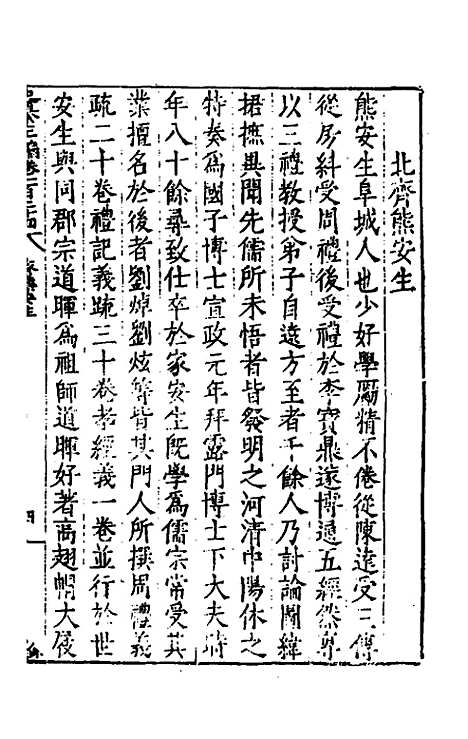 北齊熊安生
熊安生阜城人也少好學勵精不倦從陳逵受三傳
從房糾受周禮後受禮於李寶鼎遂博通五經然專
以三禮教授弟子自遠方至者千餘人乃討論圖緯
捃摭異聞先儒所未悟者皆發明之河清中陽休之
特奏爲國子博士宣政元年拜露門博士下大夫時
年八十餘尋致仕卒於家安生旣學爲儒宗常受其
業擅名於後者劉焯劉炫等皆其門人所撰周禮義
疏二十卷禮記義疏三十卷孝經義一卷並行於世
安生與同郡宗道暉爲祖師道暉好著高翅帽大屐
四